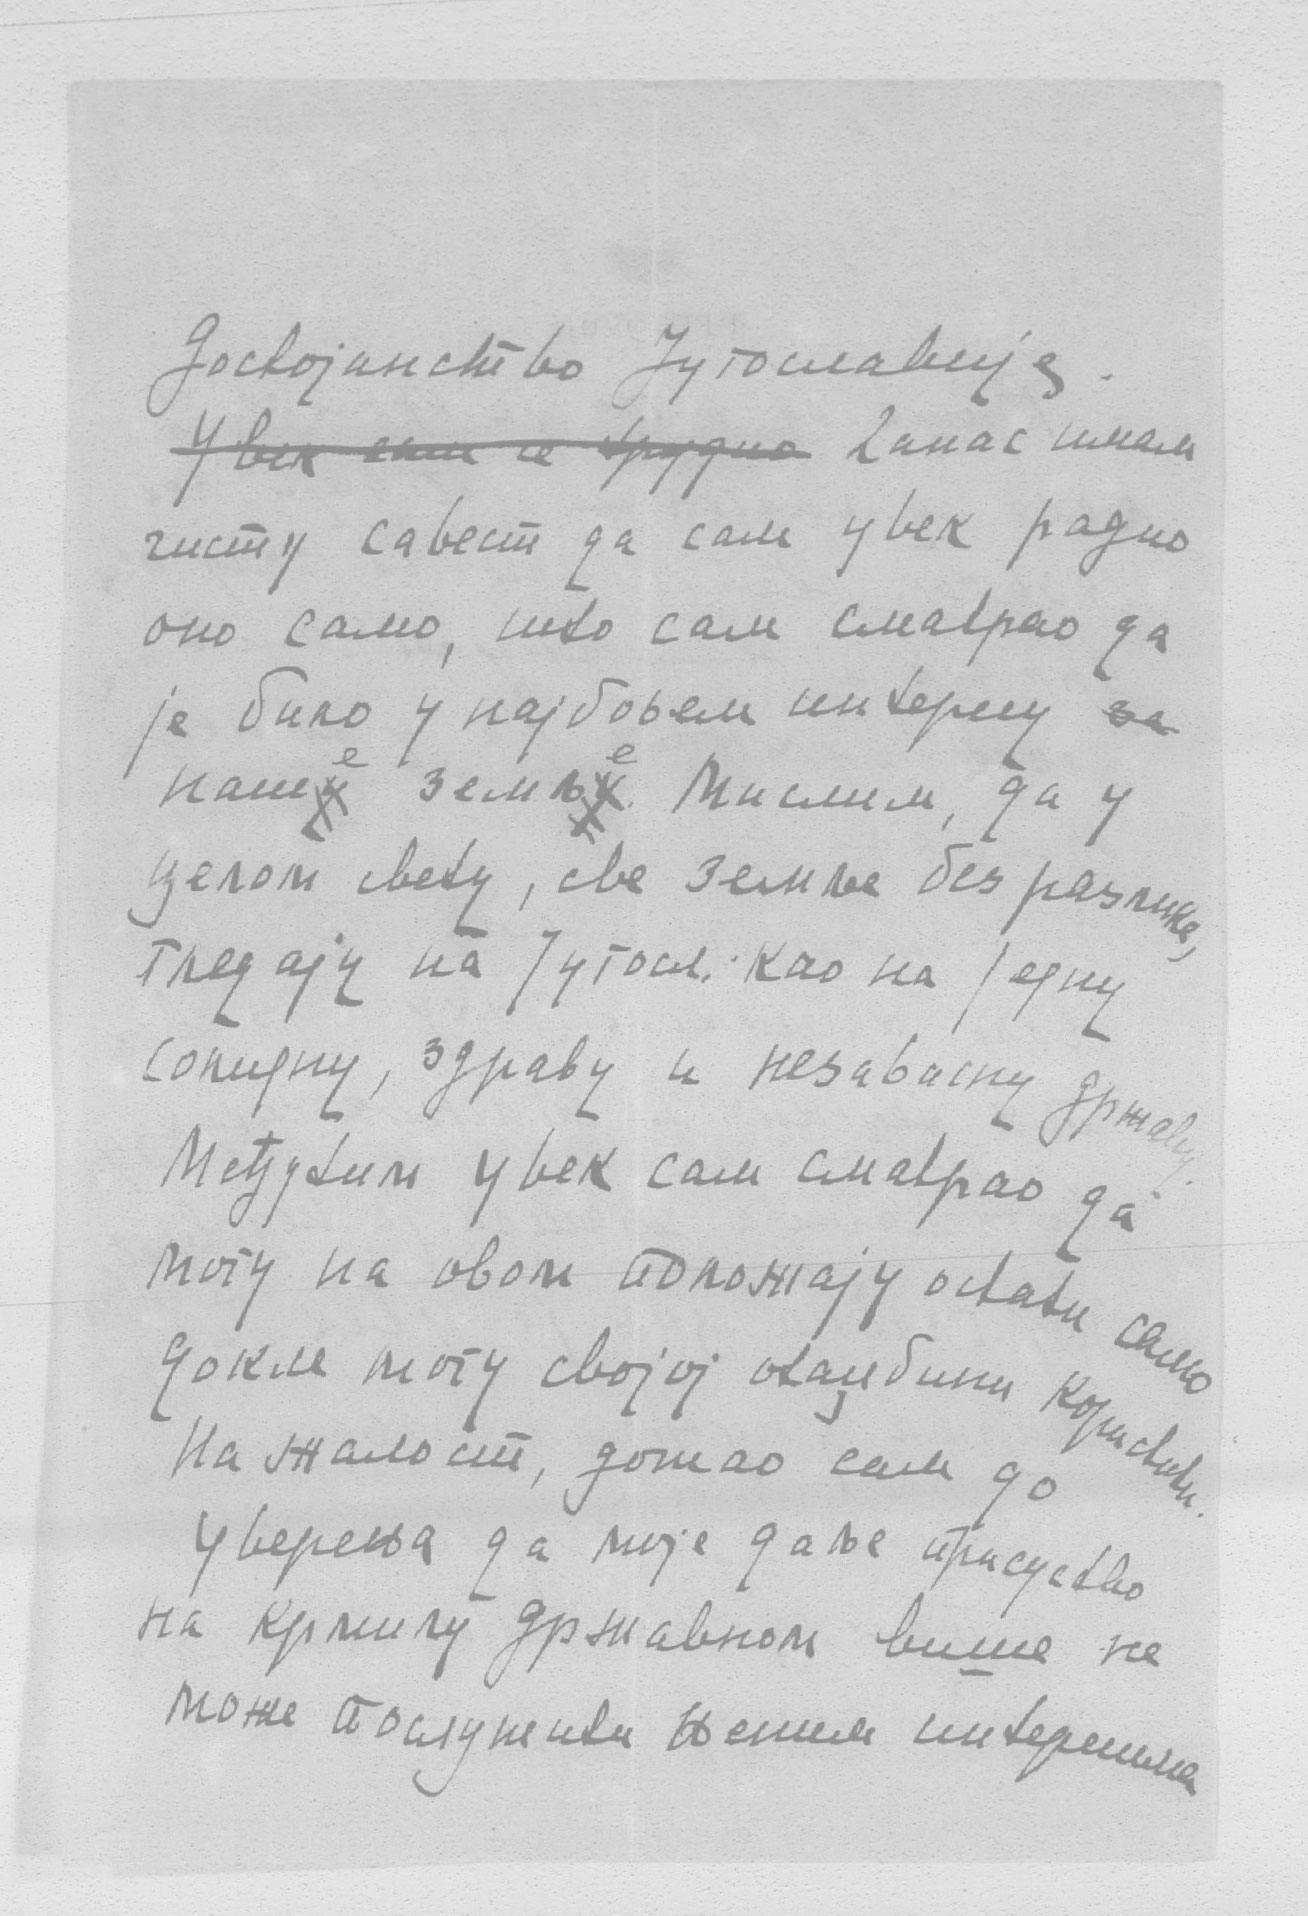 Достојанство Југославије.
Увек сам се трудио Данас имам
чисту савест да сам увек радио
оно само, што сам сматрао да
је било у најбољем интересу за
наше земље. Мислим, да у
целом свету, све земље без разлике,
гледају на Југосл. као на једну
солидну, здраву и независну државу.
Међутим увек сам сматрао да
могу на овом положају остати само
докле могу својој отаџбини користити.
На жалост, дошао сам до
уверења да моје даље присуство
на крмилу државном више не
може послужити њеним интересима